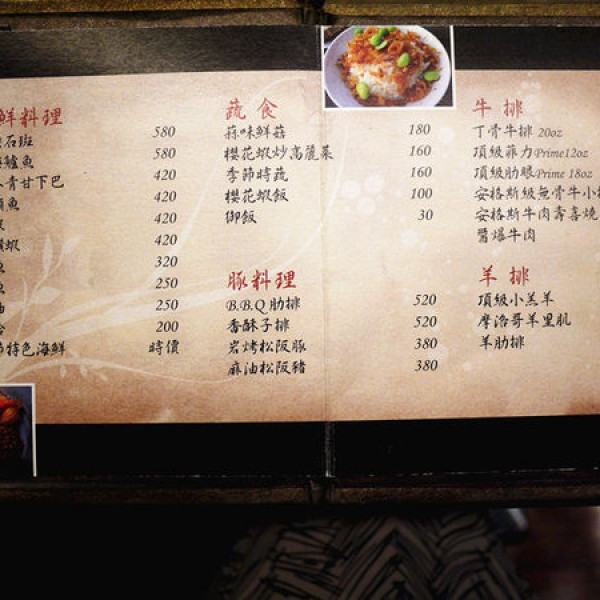 鮮料理
石斑 580
鱸魚 580
青甘下巴 420
魚 420
420
蝦 420
魚 320
魚 250
250
200
特色海鮮 時價
蔬食
蒜味鮮菇 180
櫻花蝦炒高麗菜 160
季節時蔬 160
櫻花蝦飯 100
御飯 30
豚料理
B.B.Q肋排 520
香酥子排 520
岩烤松阪豚 380
麻油松阪豬 380
牛排
丁骨牛排 20oz
頂級菲力Prime12oz
頂級肋眼Prime 18oz
安格斯級無骨牛小
安格斯牛肉壽喜燒
醬爆牛肉
羊排
頂級小羔羊
摩洛哥羊里肌
羊肋排